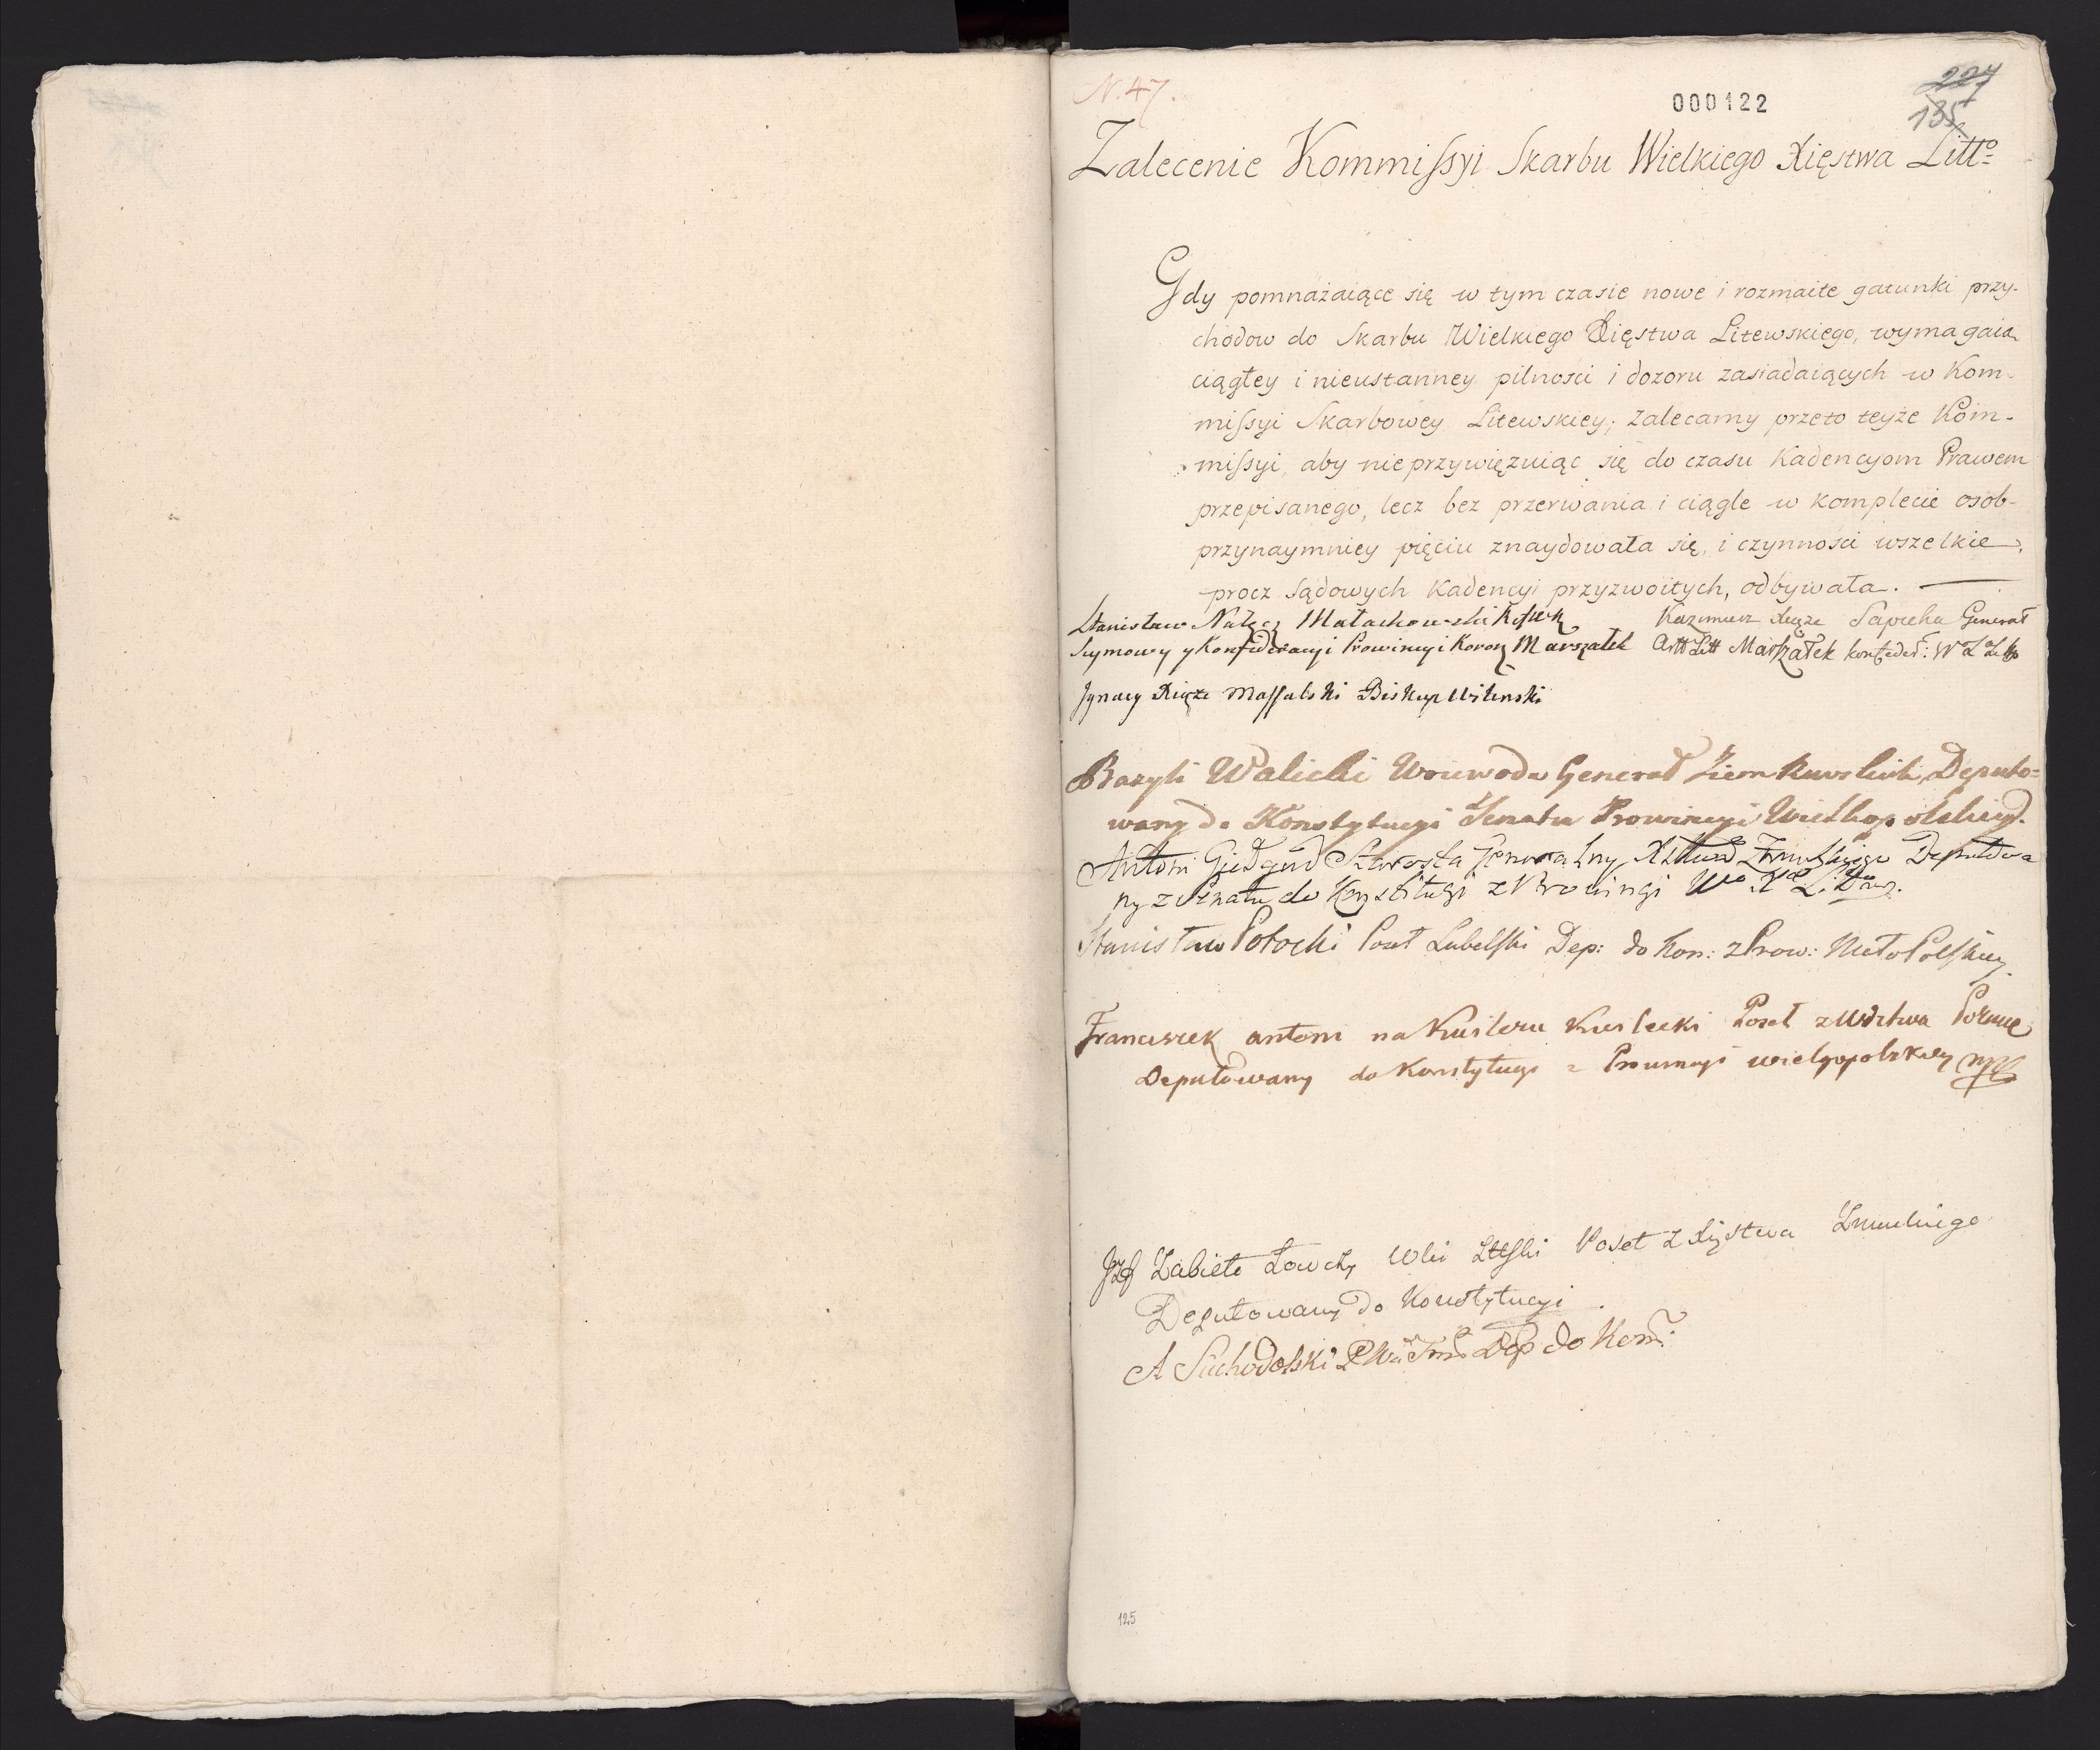 N. 47.
000122
227
135
Zalecenie Kommissyi Skarbu Wielkiego Xięstwa Litt°
Gdy pomnażaiące się w tym czasie nowe i rozmaite gatunki przy-
chodow do Skarbu Wielkiego Xięstwa Litewskiego, wymagaią
ciągłey i nieustanney pilności i dozoru zasiadaiących w Kom-
missyi Skarbowey Litewskiey; zalecamy przeto teyże Kom-
missyi, aby nieprzywięzuiąc się do czasu Kadencyom Prawem
przepisanego, lecz bez przerwania i ciągle w komplecie osob
przynaymniey pięciu znaydowała się, i czynności wszelkie,
procz sądowych Kadencyi przyzwoitych, odbywała.
Stanisław Nałęcz Małachowski R. W. K. Kazimierz Xiąże Sapieha Generał
Seymowy y Konfederacyi Prowincyi Koron Marszałek Artt Litt Marszałek konfeder: W X Litt°
Ignacy Xiąże Massalski Biskup Wilenski
Bazyli Walicki Woiewoda Generał Ziem Rawskich, Deputo=
wany do Konstytucyi z Senatu Prowincyi Wielkopolskiey.
Antoni Giełgud Starosta Jeneralny Xięstwa Żmudzkiego Deputowa
ny z Senatu do Konstitucyi z Prowincyi W° X° Lit.
Stanisław Potocki Poseł Lubelski Dep: do Kon: z Prow: MałoPolskiey
Franciszek antoni na Kwilczu Kwilecki Poseł z Wdztwa Pozna
Deputowany do Konstytucyi z Prowincyi wielgopolskiey mp
Jzf Zabiełło Łowczy Wki Littski Poseł z Xięstwa Zmudzkiego
Deputowany do Konstytucyi.
A Suchodolski Dep do Kon:
125